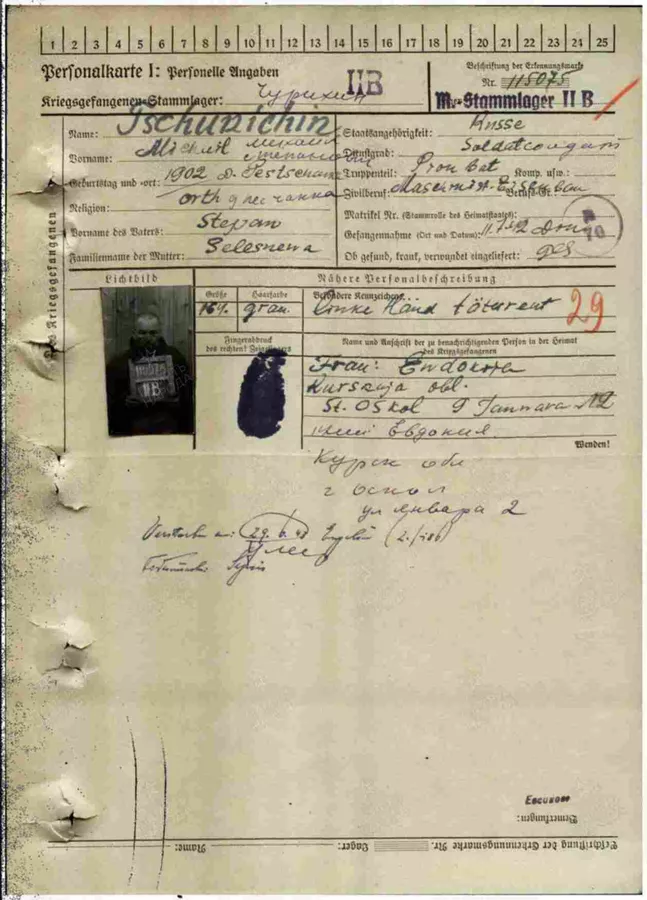 1 2 3 4 5 6 7 8 9 10 11 12 13 14 15 16 17 18 19 20 21 22 23 24 25
Personalkarte I: Personelle Angaben
II B
Beschriftung der Erkennungsmarke
Nr. 115075
Kriegsgefangenen-Stammlager: Чурихин
M.-Stammlager II B
Name: Tschurichin
Staatsangehörigkeit: Russe
Vorname: Michail Михаил
Dienstgrad: Soldat
Truppenteil: Komp. usw.:
Geburtstag und -ort: 1902
Zivilberuf: Berufs-Gr.
Religion: orth
Matrikel Nr. (Stammrolle des Heimatstaates):
Vorname des Vaters: Stepan
Gefangennahme (Ort und Datum): 11.7.42 Don
Familienname der Mutter: Selesnewa
Ob gesund, krank, verwundet eingeliefert: ges
Des Kriegsgefangenen
Lichtbild
Nähere Personalbeschreibung
Größe Haarfarbe Besondere Kennzeichen:
169. grau. Linke Hand
29
Fingerabdruck
des rechten! Zeigefingers
Name und Anschrift der zu benachrichtigenden Person in der Heimat
des Kriegsgefangenen
II B
Frau: Ewdokija
Kurskaja obl.
St. Oskol 9 Jannara N2
Евдокия
Wenden!
Курск обл
г оскол
ул января 2
Verstorben am: 29. 6. 43
умер
Bemerkungen:
Beschriftung der Erkennungsmarke Nr. Lager: Name: